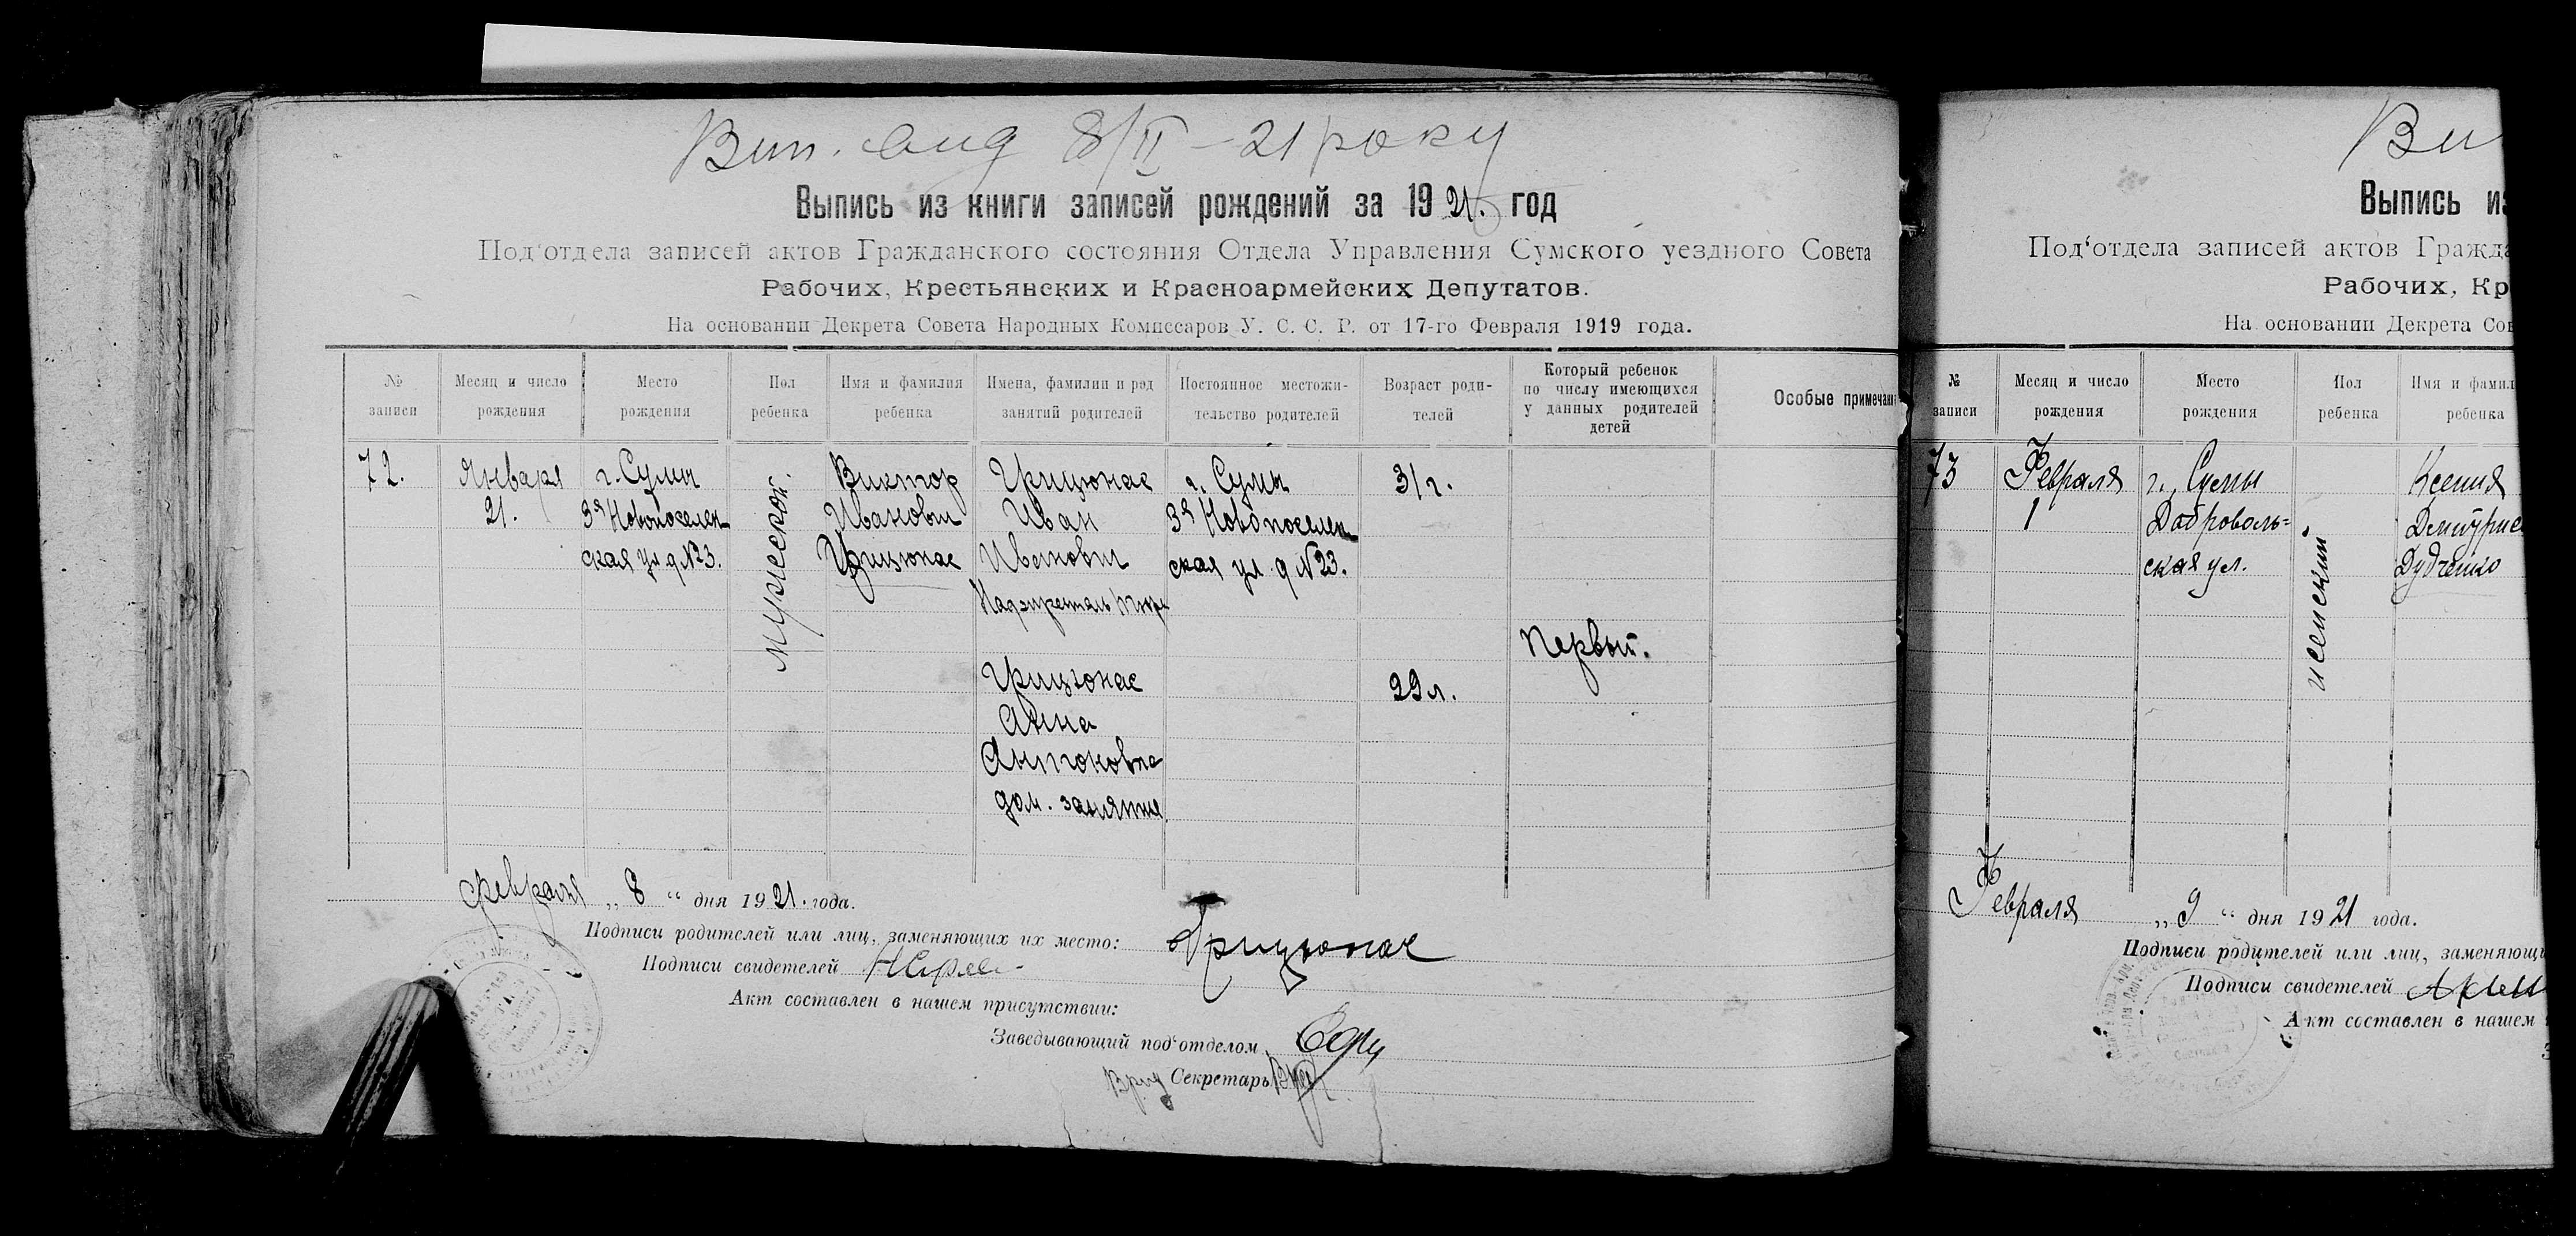 Вип. вид 8/II - 21 року
Выпись из книги записей рождений за 1921. год
Под'отдела записей актов Гражданского состояния Отдела Управления Сумского уездного Совета
Рабочих, Крестьянских и Красноармейских Депутатов.
На основании Декрета Совета Народных Комиссаров У. С. С. Р. от 17-го Февраля 1919 года.
№ записи
Месяц и число рождения
Место рождения
Пол ребенка
Имя и фамилия ребенка
Имена, фамилии и род занятий родителей
Постоянное местожи-
тельство родителей
Возраст роди-
телей
Который ребенок
по числу имеющихся
у данных родителей
детей
Особые примечани
72.
Января
21.
г. Сумы
3я Новопоселен
ская ул д №23.
мужеской.
Виктор
Иванович
Грицюнас
Грицюнас
Иван
Иванович
г. Сумы
3я Новопоселен
ская ул д №23.
31 г.
Первый.
Грицюнас
Анна
Антоновна
дом. занятие
29 л.
Февраля „ 8 “ дня 1921. года.
Подписи родителей или лиц, заменяющих их место: Грицюнас
Подписи свидетелей
Акт составлен в нашем присутствии:
Заведывающий под'отделом
Врид Секретарь
Ви
Выпись из
Под'отдела записей актов Гражда
Рабочих, Кр
На основании Декрета Сов
№ записи
Месяц и число рождения
Место рождения
Пол ребенка
Имя и фамил
ребенка
73
Февраля
1
г. Сумы
Доброволь=
ская ул.
женский
Ксения
Дмитрие
Дудченко
Февраля „ 9 “ дня 1921 года.
Подписи родителей или лиц, заменяющи
Подписи свидетелей
Акт составлен в нашем